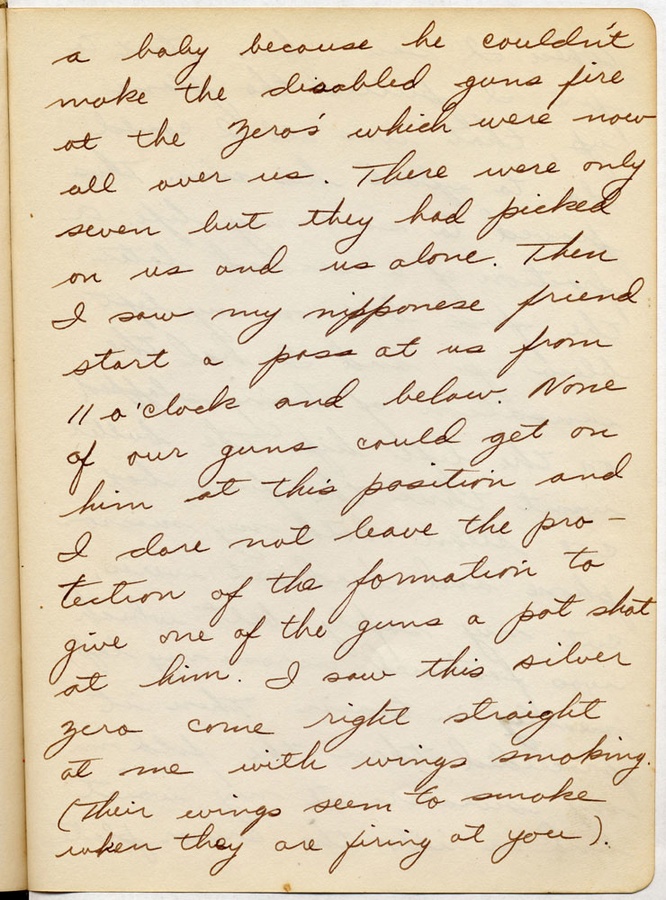 a baby because he couldn't
make the disabled guns fire
at the Zeros' which were now
all over us. There were only
seven but they had picked
on us and us alone. Then
I saw my nipponese friend
start a pass at us from
11 o'clock and below. None
of our guns could get on
him at this position and
I dare not leave the pro-
tection of the formation to
give one of the guns a pot shot
at him. I saw this silver
zero come right straight
at me with wings smoking.
(Their wings seem to smoke
when they are firing at you).